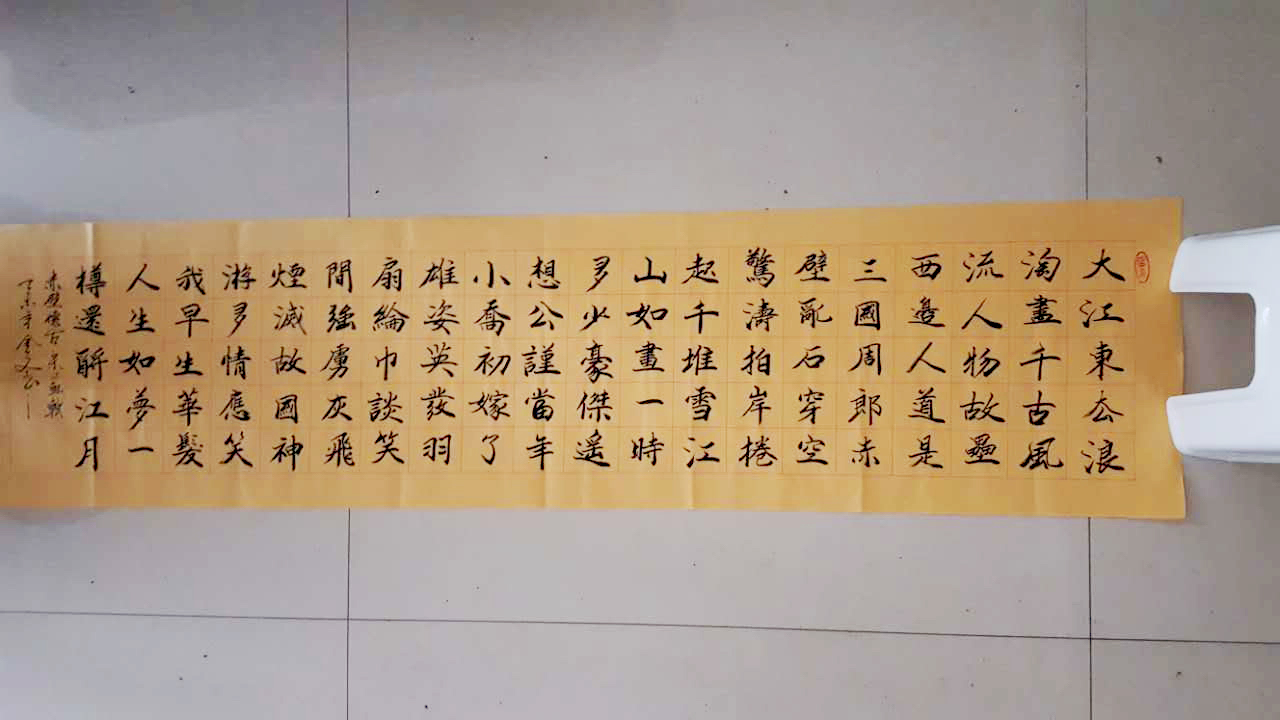 大江東去浪
淘盡千古風
流人物故壘
西邊人道是
三國周郎赤
壁亂石穿空
驚濤拍岸捲
起千堆雪江
山如畫一時
多少豪傑遙
想公謹當年
小喬初嫁了
雄姿英發羽
扇綸巾談笑
間強虜灰飛
煙滅故國神
游多情應笑
我早生華髮
人生如夢一
樽還酹江月
赤壁懷古